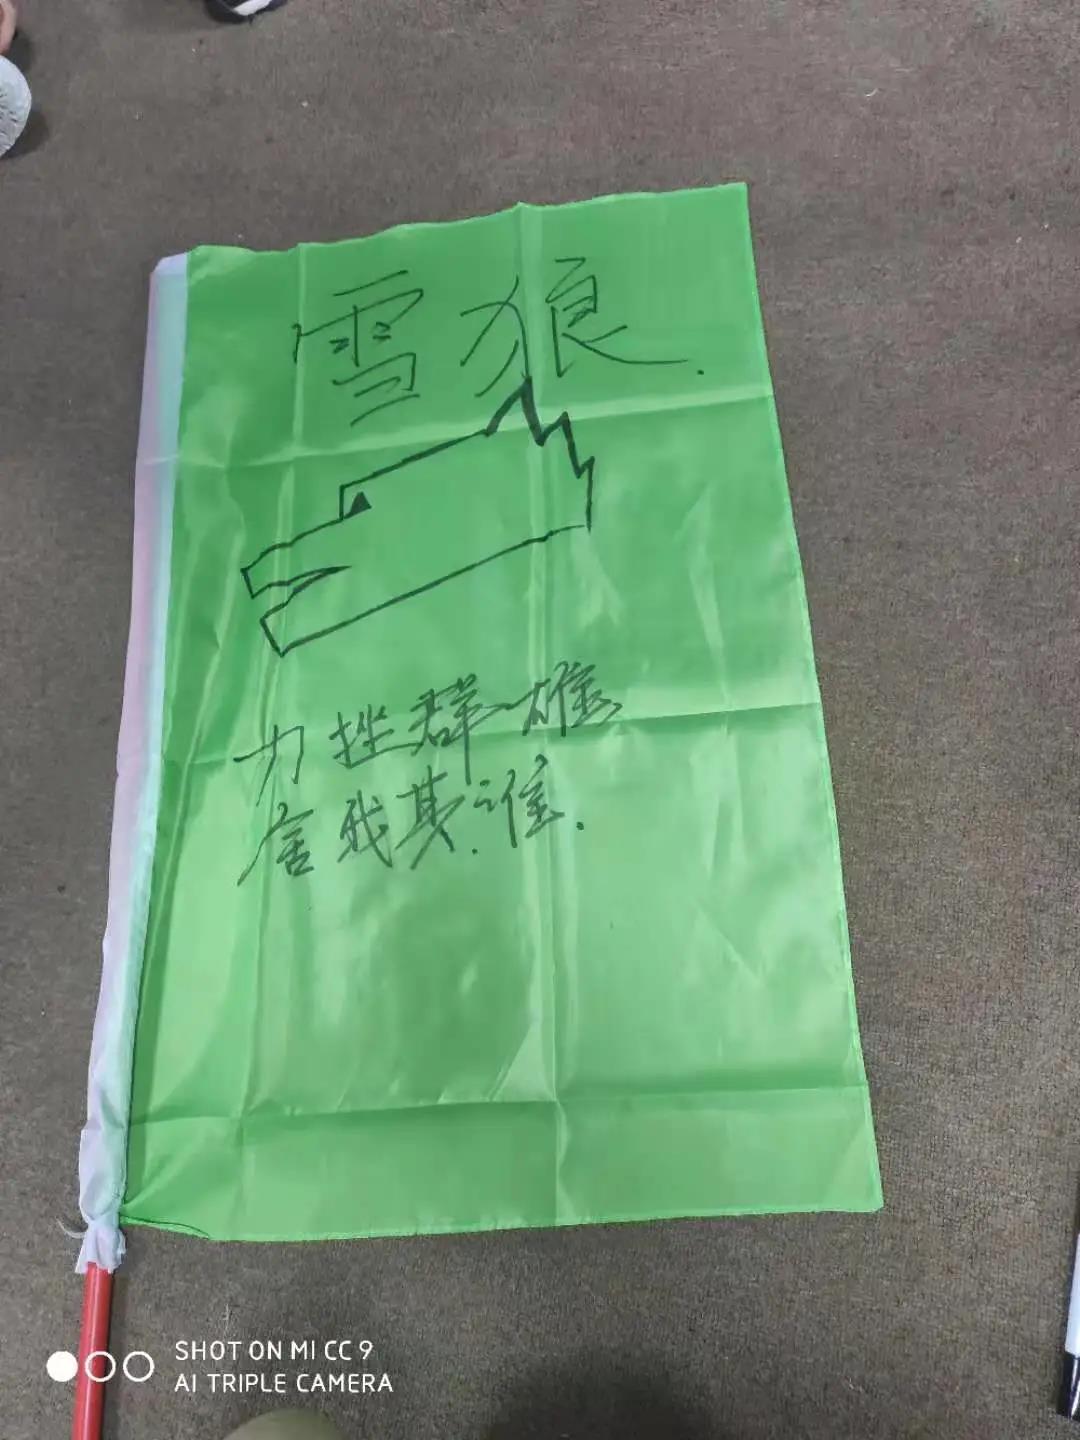 雪狼.
力挫群雄
舍我其谁.
SHOT ON MI CC 9
AI TRIPLE CAMERA